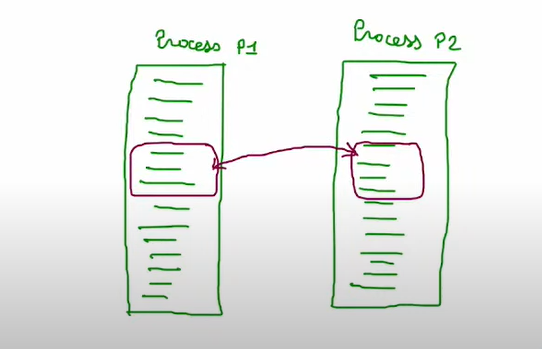 Process P1
Process P2